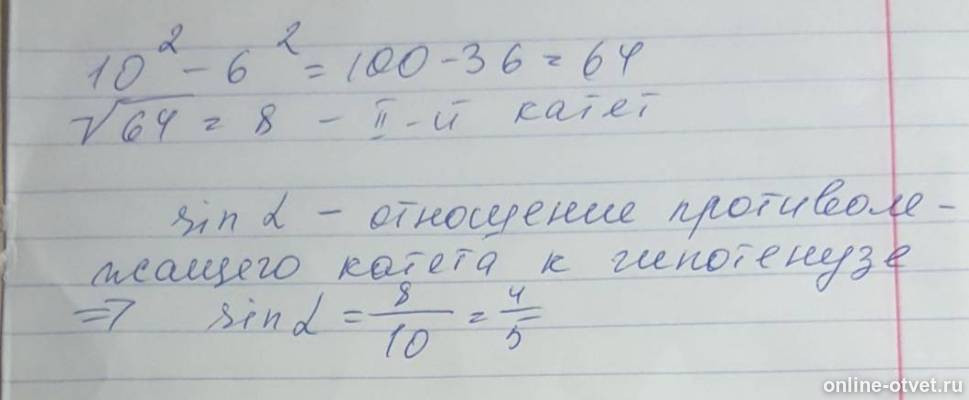 10² - 6² = 100 - 36 = 64
√64 = 8 - II-й катет
sin α - отношение противоле-
жащего катета к гипотенузе
=> sin α = 8/10 = 4/5
online-otvet.ru